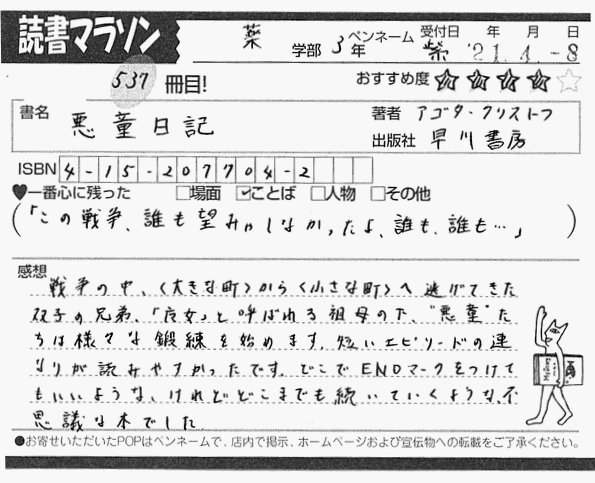 読書マラソン
薬 学部 3年 ペンネーム 紫 受付日 年 月 日 '21. 4. -8
537 冊目!
おすすめ度 ★★★★☆
書名 悪童日記
著者 アゴタ・クリストフ
出版社 早川書房
ISBN 4-15-207704-2
♥一番心に残った □場面 ☑ことば □人物 □その他
(「この戦争、誰も望みゃしなかったよ、誰も、誰も…」)
感想
戦争の中、〈大きな町〉から〈小さな町〉へ逃げてきた
双子の兄弟、「魔女」と呼ばれる祖母の下、"悪童"た
ちは様々な鍛練を始めます。短いエピソードの連
なりが読みやすかったです。どこでENDマークをつけて
もいいような、けれどどこまでも続いていくような、不
思議な本でした
●お寄せいただいたPOPはペンネームで、店内で掲示、ホームページおよび宣伝物への転載をご了承ください。